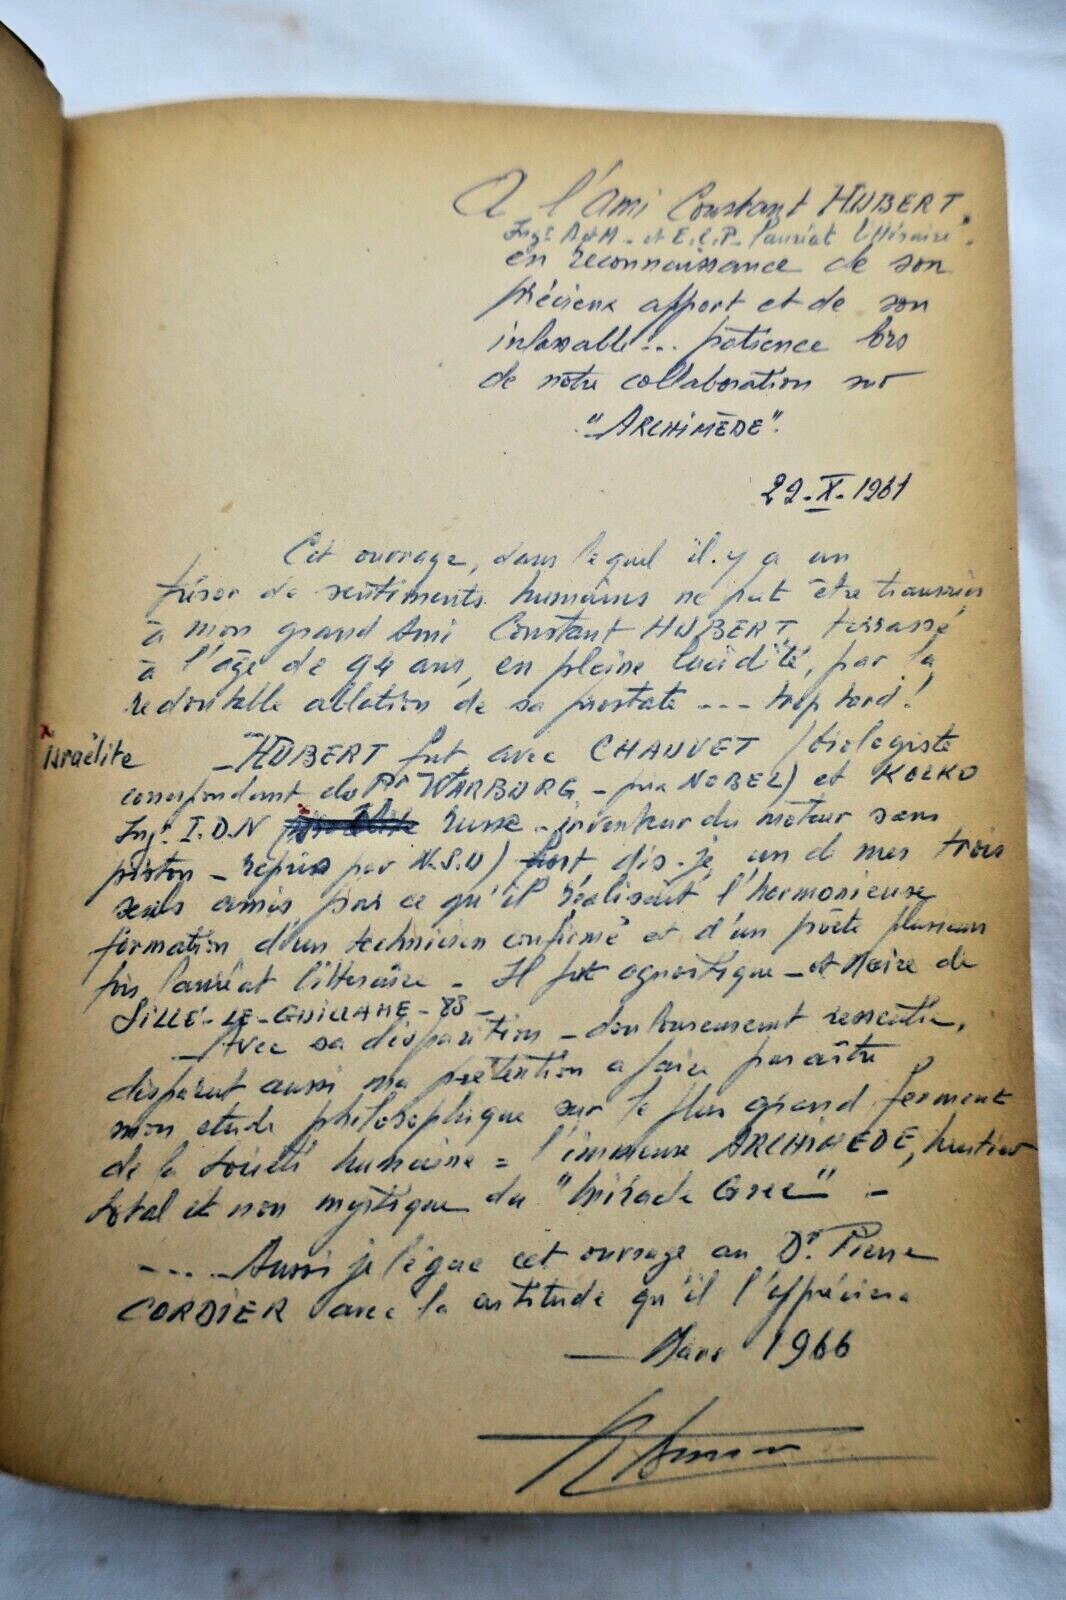 A l'Ami Constant HUBERT.
Ing. A&M - et E.C.P. Lauréat littéraire.
en reconnaissance de son
précieux apport et de son
inlassable... patience lors
de notre collaboration sur
"ARCHIMÈDE".
22-X-1961
Cet ouvrage, dans lequel il y a un
trésor de sentiments humains ne put être transmis
à mon grand Ami Constant HUBERT, terrassé
à l'âge de 94 ans, en pleine lucidité, par la
redoutable ablation de sa prostate --- trop tard!
x israëlite
- HUBERT fut, avec CHAUVET (biologiste
correspondant du Pr WARBURG - prix NOBEL) et KOLKO
Ingr. I.D.N russe - inventeur du moteur sans
piston - repris par N.S.U) fut, dis-je, un d mes trois
seuls amis, par ce qu'il réalisait l'harmonieuse
formation d'un technicien confirmé et d'un poète plusieurs
fois lauréat littéraire - Il fut agnostique - et Maire de
SILLÉ-LE-GUILLAME -
- Avec sa disparition - douloureusement ressentie,
disparut aussi ma prétention a faire paraître
mon etude philosophique sur le plus grand ferment
de la Société humaine = l'immense ARCHIMEDE, héritier
total et non mystique du "Miracle Grec" -
- ... - Aussi je lègue cet ouvrage au Dr. Pierre
CORDIER avec la certitude qu'il l'appréciera
- Mars 1966